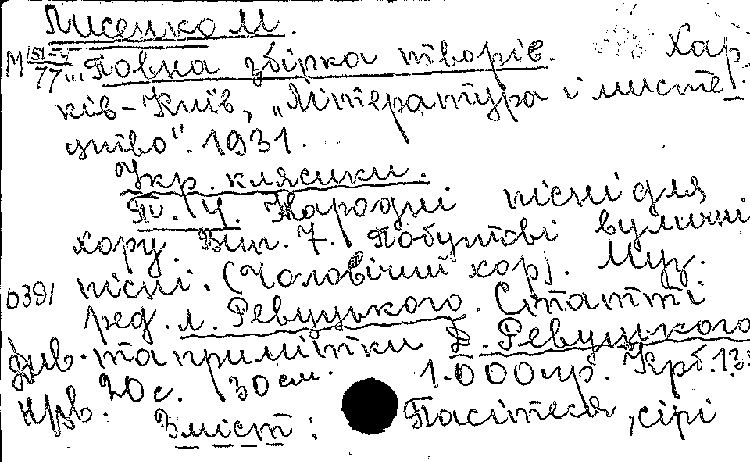 Лисенко М.
М 151-7/77 Повна збірка творів. Хар-
ків-Київ, „Література і мисте-
цтво". 1931.
Укр. клясики.
Т. IV. Народні пісні для
хору. Вип. 7. Побутові вуличні
0391 пісні. (Чоловічий хор). Муз.
ред. Л. Ревуцького. Статті
та примітки Д. Ревуцького
20 с. 30 см. 1.000 пр. Крб. 1.3
Зміст: Пасітеся, сірі